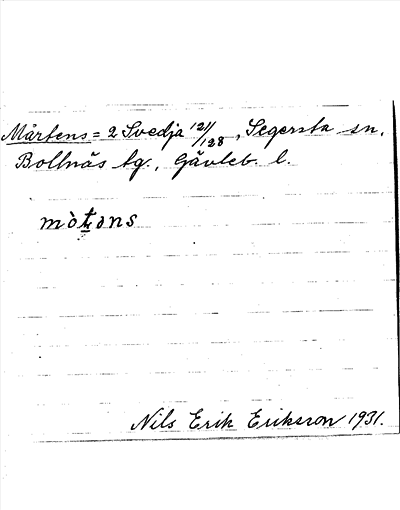 Mårtens = 2 Svedja 121/128, Segersta sn,
Bollnäs tg., Gävleb. l.
mò̀ṭəns
Nils Erik Eriksson 1931.